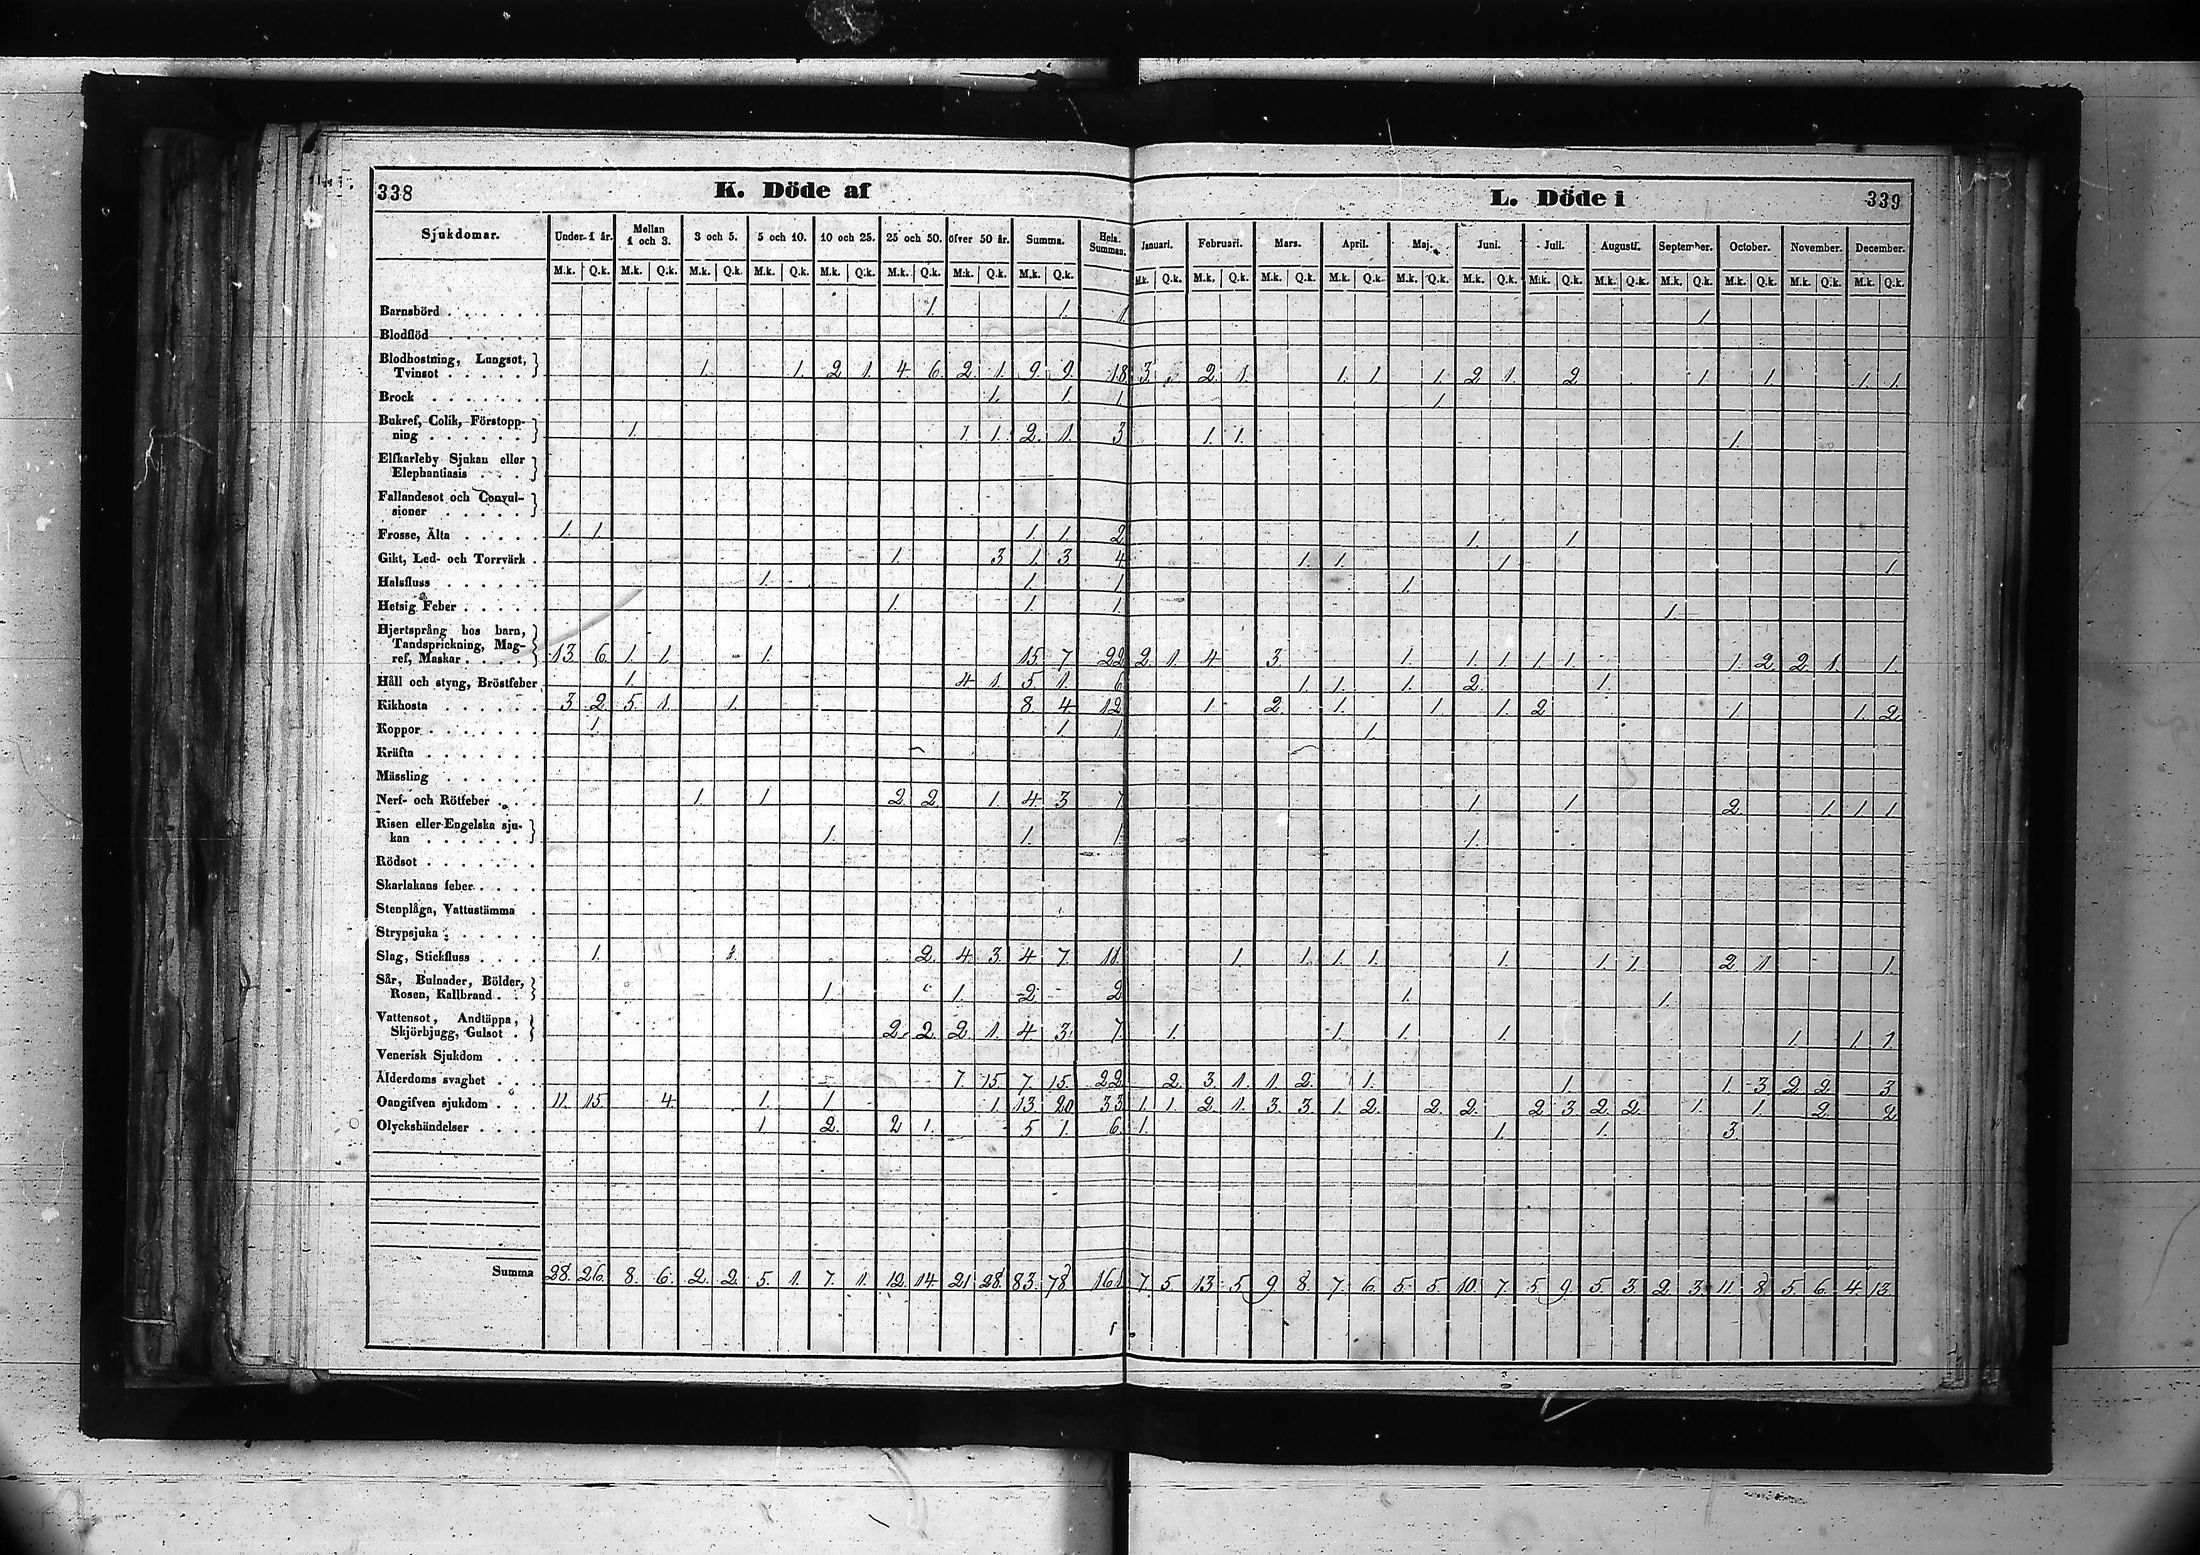 338 K. Döde af L. Döde i 339
Sjukdomar. Under 1 år. Mellan 1 och 3. 3 och 5. 5 och 10. 10 och 25. 25 och 50. öfver 50 år. Summa. Hela Summan. Januari. Februari. Mars. April. Maj. Juni. Juli. Augusti. September. October. November. December.
M.k. Q.k. M.k. Q.k. M.k. Q.k. M.k. Q.k. M.k. Q.k. M.k. Q.k. M.k. Q.k. M.k. Q.k. M.k. Q.k. M.k. Q.k. M.k. Q.k. M.k. Q.k. M.k. Q.k. M.k. Q.k. M.k. Q.k. M.k. Q.k. M.k. Q.k. M.k. Q.k. M.k. Q.k. M.k. Q.k.
Barnsbörd 1. 1. 1 1
Blodflöd
Blodhostning, Lungsot,
Tvinsot 1. 1. 2 1. 4 6. 2 1. 9. 9. 18 3. 2. 1. 1. 1 1. 2 1. 2 1 1 1. 1.
Brock 1. 1. 1 1
Bukref, Colik, Förstopp-
ning 1. 1. 1. 2. 1. 3 1. 1. 1.
Elfkarleby Sjukan eller
Elephantiasis
Fallandesot och Convul-
sioner
Frosse, Älta 1. 1 1. 1. 2 1. 1
Gikt, Led- och Torrvärk 1. 3 1. 3 4 1. 1. 1 1
Halsfluss 1. 1. 1 1.
Hetsig Feber 1. 1. 1. 1.
Hjertsprång hos barn,
Tandsprickning, Mag-
ref, Maskar 13. 6. 1. 1. 1. 15. 7 22 2. 1. 4 3. 1. 1. 1. 1. 1. 1. 2 2 1. 1.
Håll och styng, Bröstfeber 1. 4 1. 5 1. 6 1. 1. 1. 2. 1.
Kikhosta 3. 2. 5. 1. 1. 8. 4. 12 1. 2. 1. 1. 1. 2 1. 1. 2
Koppor 1. 1 1 1.
Kräfta
Mässling
Nerf- och Rötfeber 1. 1 2 2 1. 4. 3 7 1. 1 2 1. 1 1
Risen eller Engelska sju-
kan 1. 1. 1 1.
Rödsot
Skarlakans feber
Stenplåga, Vattustämma
Strypsjuka
Slag, Stickfluss 1. 1. 2. 4. 3. 4 7. 11. 1. 1. 1. 1. 1 1. 1. 2 1 1.
Sår, Bulnader, Bölder,
Rosen, Kallbrand 1. 1. 2 2 1. 1.
Vattensot, Andtäppa,
Skjörbjugg, Gulsot 2. 2. 2. 1. 4 3. 7. 1. 1. 1. 1. 1. 1. 1.
Venerisk Sjukdom
Ålderdoms svaghet 7. 15. 7. 15. 22 2. 3. 1. 1. 2. 1. 1 1 3 2 2. 3.
Oangifven sjukdom 11. 15. 4. 1. 1 1. 13 20 33 1. 1. 2. 1. 3. 3. 1. 2. 2. 2. 2 3 2. 2. 1. 1. 2. 2
Olyckshändelser 1 2. 2 1. 5 1. 6. 1. 1. 1. 3
Summa 28. 26. 8. 6. 2. 2. 5. 1. 7. 1. 12. 14 21 28. 83. 78 161 7. 5. 13. 5. 9. 8. 7. 6. 5. 5. 10. 7. 5. 9. 5. 3. 2. 3 11. 8 5. 6. 4 13.